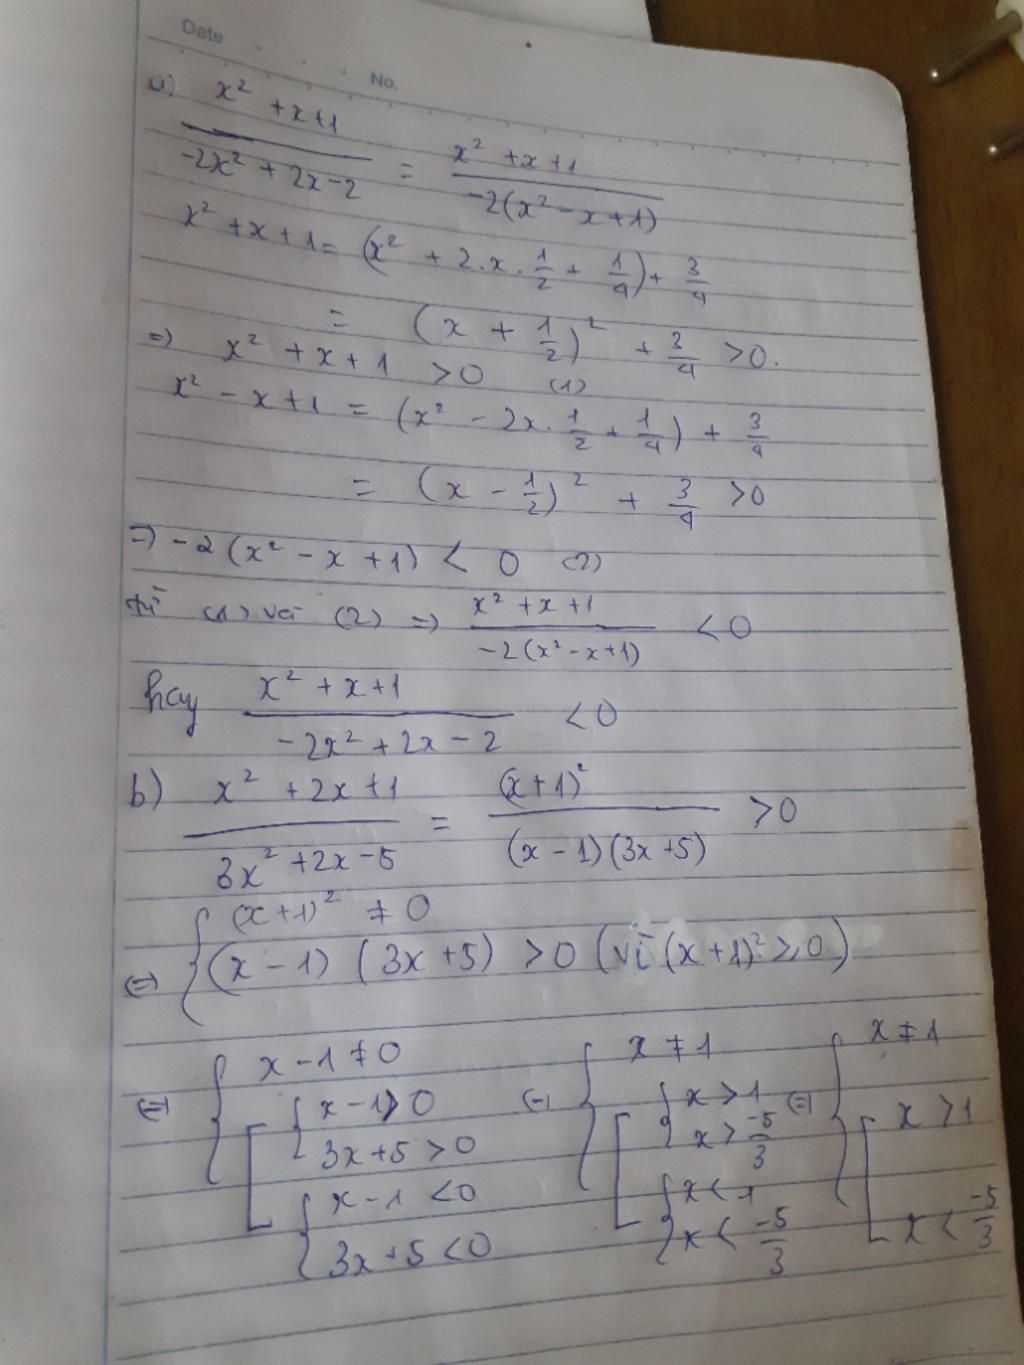 Date
No.
a) x² + x + 1 / -2x² + 2x - 2 = x² + x + 1 / -2(x² - x + 1)
x² + x + 1 = (x² + 2.x.1/2 + 1/4) + 3/4
= (x + 1/2)² + 3/4 > 0.
=> x² + x + 1 > 0 (1)
x² - x + 1 = (x² - 2x.1/2 + 1/4) + 3/4
= (x - 1/2)² + 3/4 > 0
=> -2(x² - x + 1) < 0 (2)
từ (1) và (2) => x² + x + 1 / -2(x² - x + 1) < 0
hay x² + x + 1 / -2x² + 2x - 2 < 0
b) x² + 2x + 1 / 3x² + 2x - 5 = (x + 1)² / (x - 1)(3x + 5) > 0
(x + 1)² ≠ 0
<=> { (x - 1)(3x + 5) > 0 (vì (x + 1)² ≥ 0)
<=> { x - 1 ≠ 0 [ { x - 1 > 0 3x + 5 > 0 { x - 1 < 0 3x + 5 < 0 <=> { x ≠ 1 [ { x > 1 x > -5/3 { x < 1 x < -5/3 <=> { x ≠ 1 [ x > 1 x < -5/3